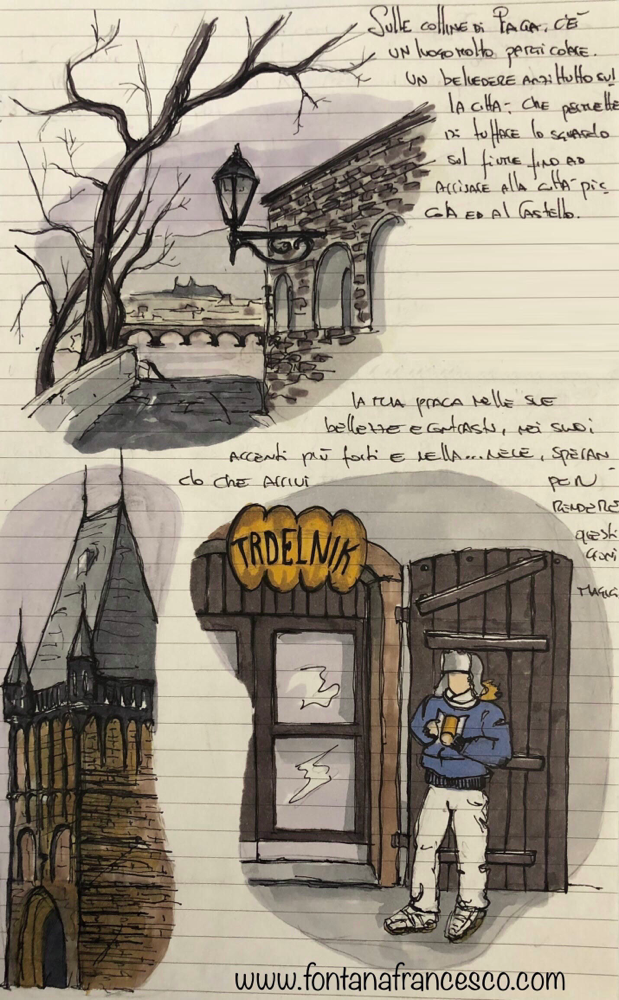 Sulle colline di Praga, c'è
un luogo molto particolare.
un belvedere anzitutto sul
la città, che permette
di tuffare lo sguardo
sul fiume fino ad
arrivare alla città pic
cola ed al Castello.
la mia praga nelle sue
bellezze e contrasti, nei suoi
accenti più forti e nella...neve, speran
do che arrivi
per
rendere
questi
giorni
magici
TRDELNIK
www.fontanafrancesco.com